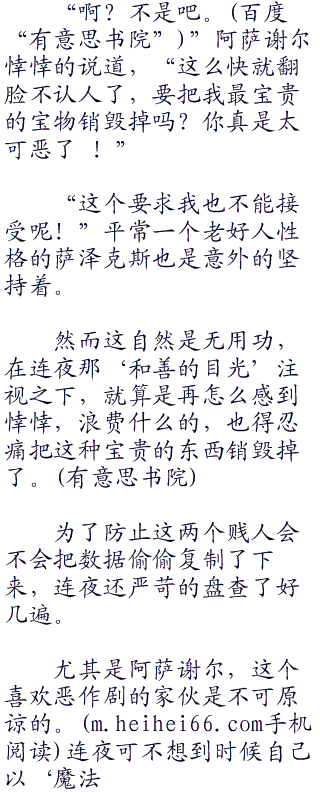 “啊？不是吧。(百度
“有意思书院”)”阿萨谢尔
悻悻的说道，“这么快就翻
脸不认人了，要把我最宝贵
的宝物销毁掉吗？你真是太
可恶了 ！”
“这个要求我也不能接
受呢！”平常一个老好人性
格的萨泽克斯也是意外的坚
持着。
然而这自然是无用功，
在连夜那‘和善的目光’注
视之下，就算是再怎么感到
悻悻，浪费什么的，也得忍
痛把这种宝贵的东西销毁掉
了。(有意思书院)
为了防止这两个贱人会
不会把数据偷偷复制了下
来，连夜还严苛的盘查了好
几遍。
尤其是阿萨谢尔，这个
喜欢恶作剧的家伙是不可原
谅的。(m.heihei66.com手机
阅读)连夜可不想到时候自己
以‘魔法